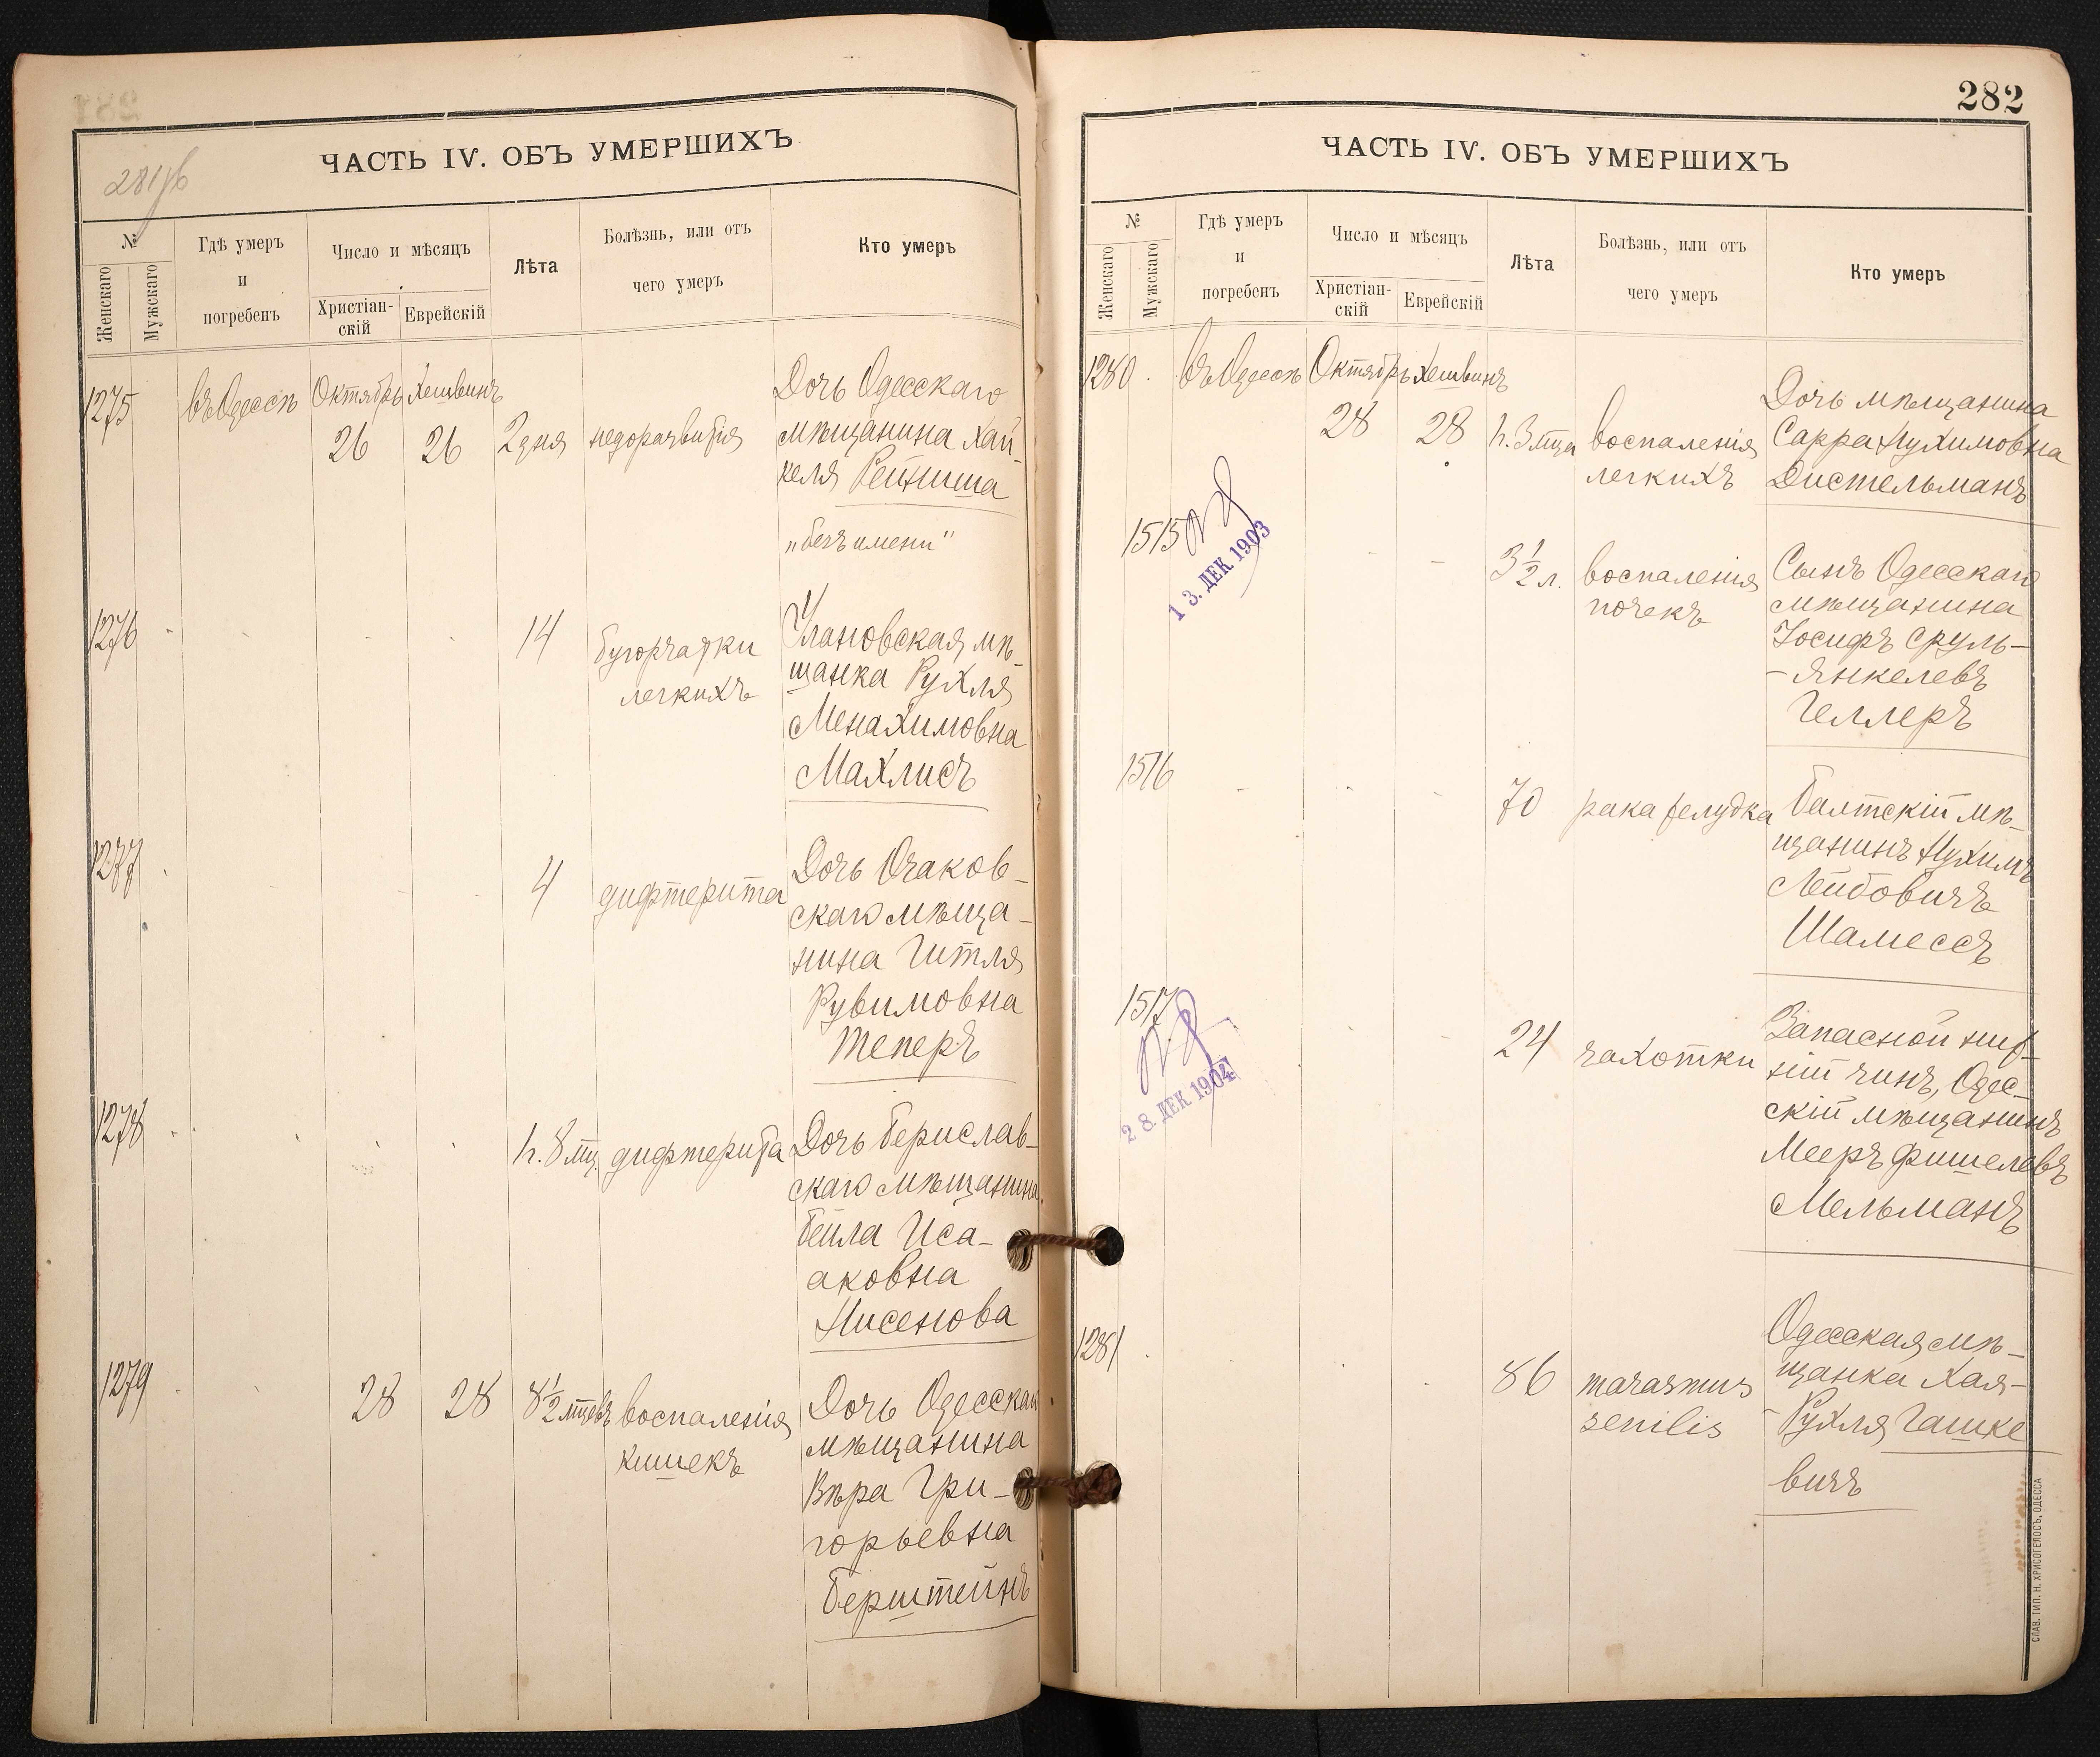 281 об
ЧАСТЬ IV. ОБЪ УМЕРШИХЪ
№
Женскаго
Мужскаго
Гдѣ умеръ
и
погребенъ
Число и мѣсяцъ
Христіан-
скій
Еврейскій
Лѣта
Болѣзнь, или отъ
чего умеръ
Кто умеръ
1275
въ Одессѣ
Октябрь
26
Хешвинъ
26
2 дня
недоразвитія
Дочь Одесскаго
мѣщанина Хай-
келя Рейтиша
"безъ имени"
1276
14
бугорчатки
легкихъ
Улановская мѣ-
щанка Рухля
Менахимовна
Махлисъ
1277
4
дифтерита
Дочь Очаков-
скаго мѣща-
нина Гитля
Рувимовна
Теперъ
1278
1 г. 8 мц.
дифтерита
Дочь Берислав-
скаго мѣщанина
Бейла Иса-
аковна
Нисенова
1279
28
28
8 1/2 мцевъ
воспаленія
кишекъ
Дочь Одесскаго
мѣщанина
Вѣра Гри-
горьевна
Берштейнъ
282
ЧАСТЬ IV. ОБЪ УМЕРШИХЪ
№
Женскаго
Мужскаго
Гдѣ умеръ
и
погребенъ
Число и мѣсяцъ
Христіан-
скій
Еврейскій
Лѣта
Болѣзнь, или отъ
чего умеръ
Кто умеръ
1280
въ Одессѣ
Октябрь
28
Хешвинъ
28
1 г. 3 мца
воспаленія
легкихъ
Дочь мѣщанина
Сарра Нухимовна
Дистельманъ
1515
13. ДЕК 1903
3 1/2 л.
воспаленія
почекъ
Сынъ Одесскаго
мѣщанина
Іосифъ Сруль-
-Янкелевъ
Геллеръ
1516
70
рака желудка
Балтскій мѣ-
щанинъ Нухимъ
Лейбовичъ
Шамессъ
1517
28. ДЕК 1904
24
чахотки
Запасной ниж-
ній чинъ, Одес-
скій мѣщанинъ
Мееръ Фишелевъ
Мельманъ
1281
86
marasmus
senilis
Одесская мѣ-
щанка Хая-
-Рухля Гашке
вичъ
СЛАВ. ТИП. Н. ХРИСОГЕЛОСЪ, ОДЕССА